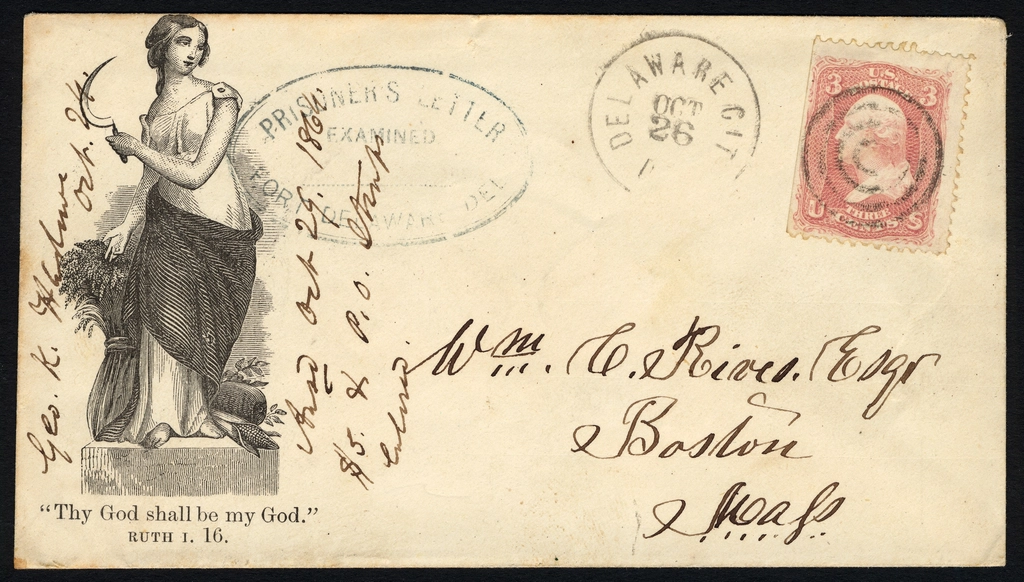 PRISONER'S LETTER
EXAMINED
FORT DELAWARE DEL
DELAWARE CIT
OCT
26
3 U.S. POSTAGE 3
U THREE CENTS S
Geo. K.
Oct. 24
Ansd Oct 29. 1864
$5. & P.O. Stamps
Wm. C. Rives. Esqr
Boston
Mass
"Thy God shall be my God."
RUTH I. 16.